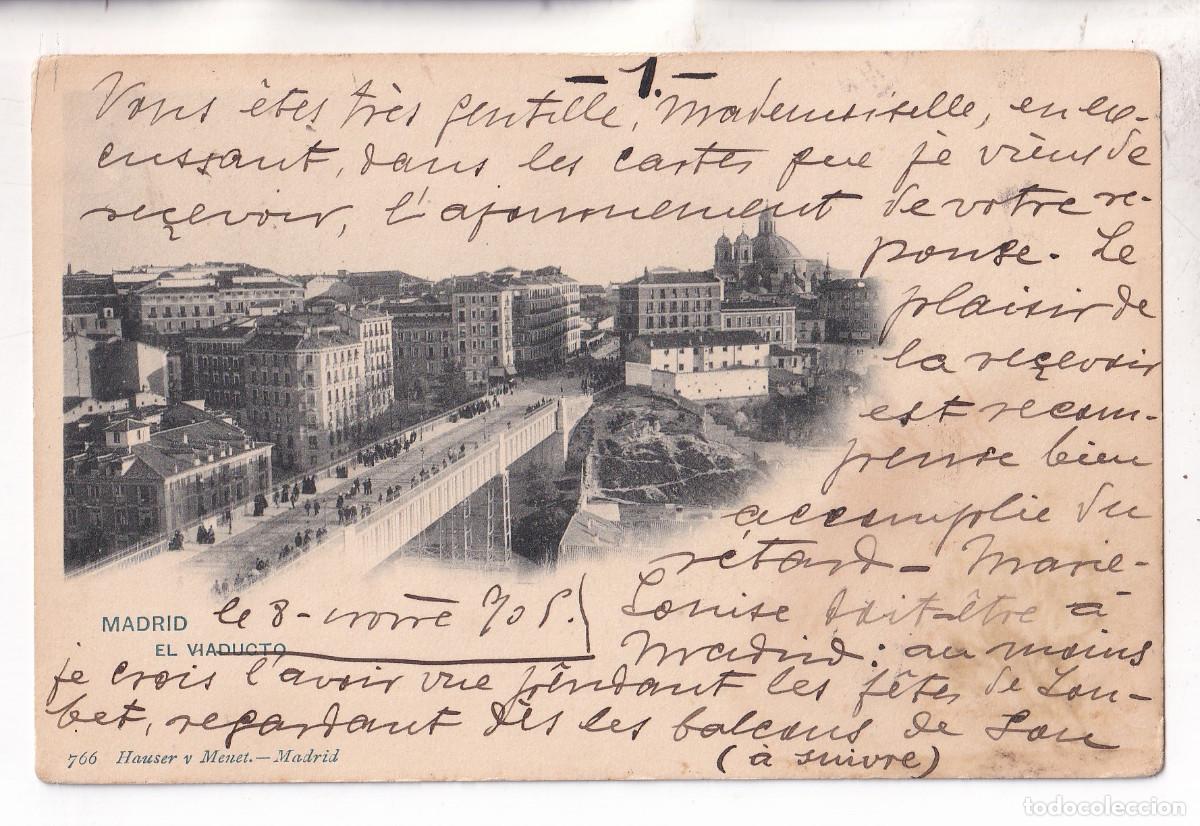 -1.-
Vous êtes très gentille, Mademoiselle, en ex-
cussant, dans les cartes que je viens de
reçevoir, l'ajournement de votre re-
ponse. Le
plaisir de
la reçevoir
est recom-
pense bien
accomplie du
rétard - Marie-
Louise doit-être à
Madrid: au moins
MADRID
EL VIADUCTO
le 8 - novre 905.
je crois l'avoir vue pendant les fêtes de Lou-
bet, regardant dès les balcons de Lou
(à suivre)
766 Hauser y Menet.-Madrid
todocoleccion